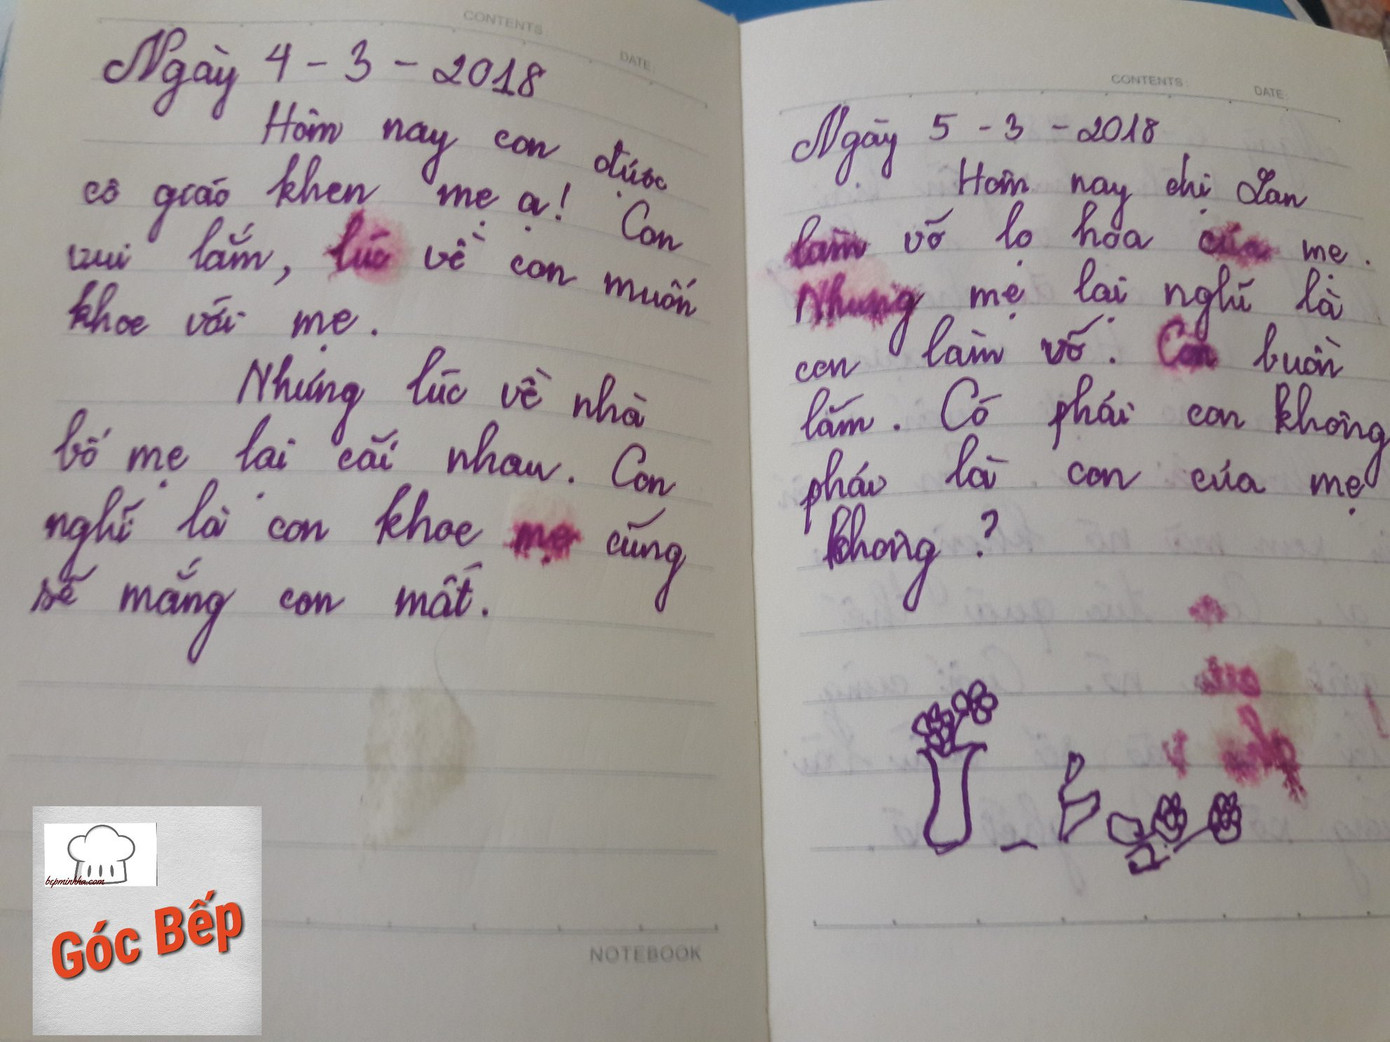 CONTENTS
DATE:
Ngày 4 - 3 - 2018
Hôm nay con được
cô giáo khen mẹ ạ! Con
vui lắm, lúc về con muốn
khoe với mẹ.
Nhưng lúc về nhà
bố mẹ lại cãi nhau. Con
nghĩ là con khoe mẹ cũng
sẽ mắng con mất.
NOTEBOOK
bepminhha.com
Góc Bếp
CONTENTS
DATE:
Ngày 5 - 3 - 2018
Hôm nay chị Lan
làm vỡ lọ hoa của mẹ.
Nhưng mẹ lại nghĩ là
con làm vỡ. Con buồn
lắm. Có phải con không
phải là con của mẹ
không?